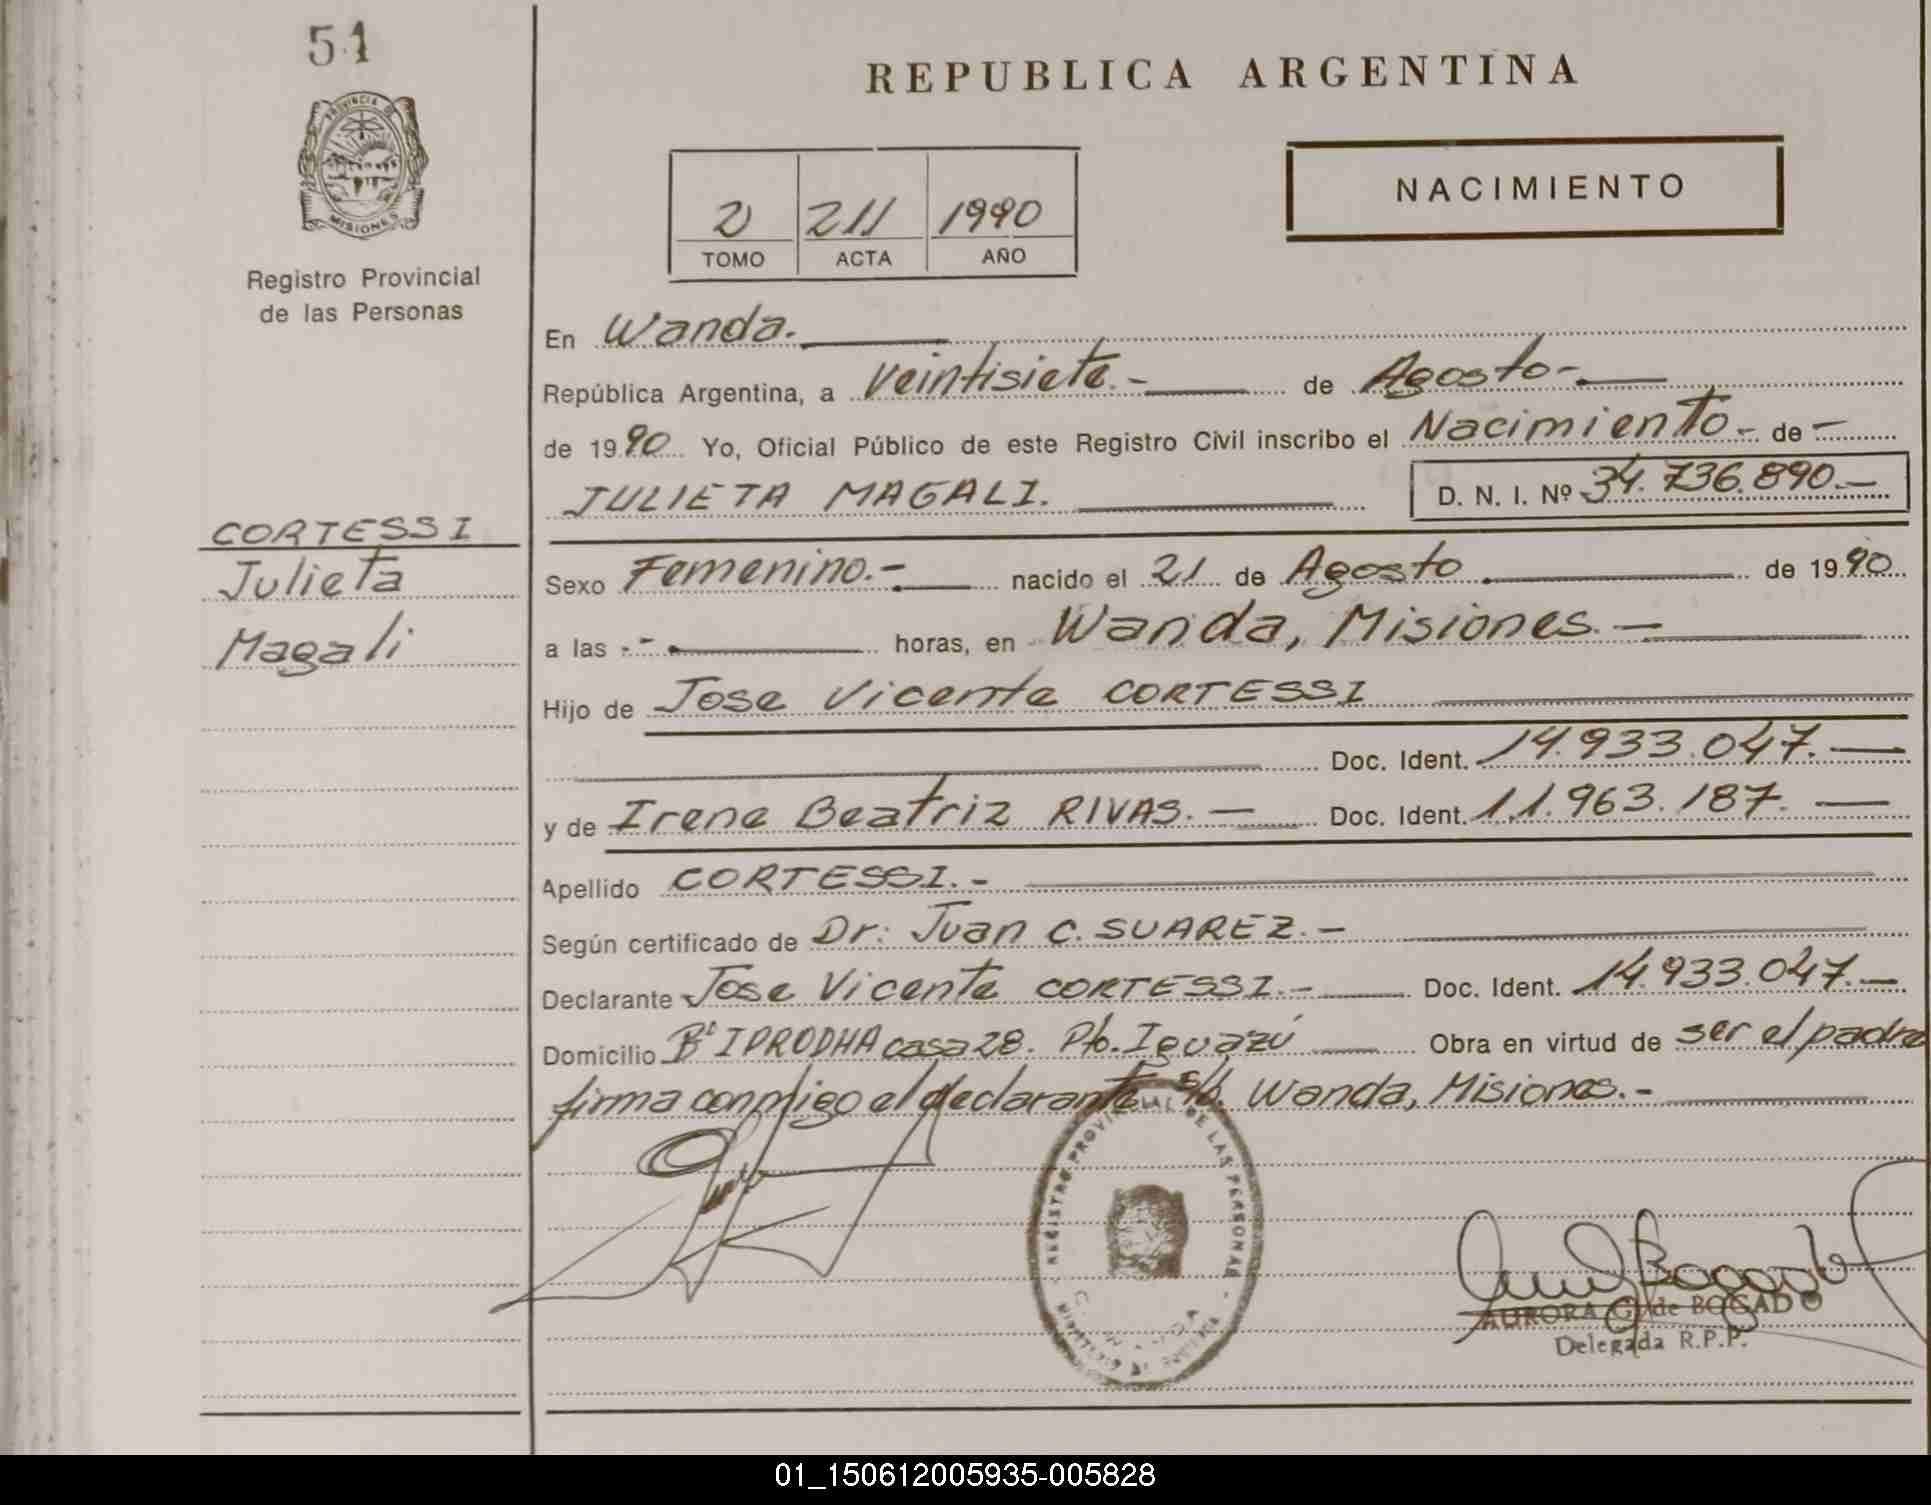 51
PROVINCIA DE
MISIONES
Registro Provincial
de las Personas
CORTESSI
Julieta
Magali
REPUBLICA ARGENTINA
2 211 1990
TOMO ACTA AÑO
NACIMIENTO
En Wanda.
República Argentina, a Veintisiete.- de Agosto-
de 1990 Yo, Oficial Público de este Registro Civil inscribo el Nacimiento- de -
JULIETA MAGALI. D. N. I. Nº 34.736.890.-
Sexo Femenino.- nacido el 21 de Agosto de 1990
a las - horas, en Wanda, Misiones.-
Hijo de Jose Vicente CORTESSI
Doc. Ident. 14.933.047.-
y de Irene Beatriz RIVAS.- Doc. Ident. 11.963.187.-
Apellido CORTESSI.-
Según certificado de Dr: Juan C. SUAREZ.-
Declarante Jose Vicente CORTESSI.- Doc. Ident. 14.933.047.-
Domicilio Bº IPRODHA casa 28. Pto. Iguazú Obra en virtud de ser el padre
firma conmigo el declarante s/d. Wanda, Misiones.-
REGISTRO PROVINCIAL DE LAS PERSONAS
AURORA G. de BOGADO
Delegada R.P.P.
01_150612005935-005828